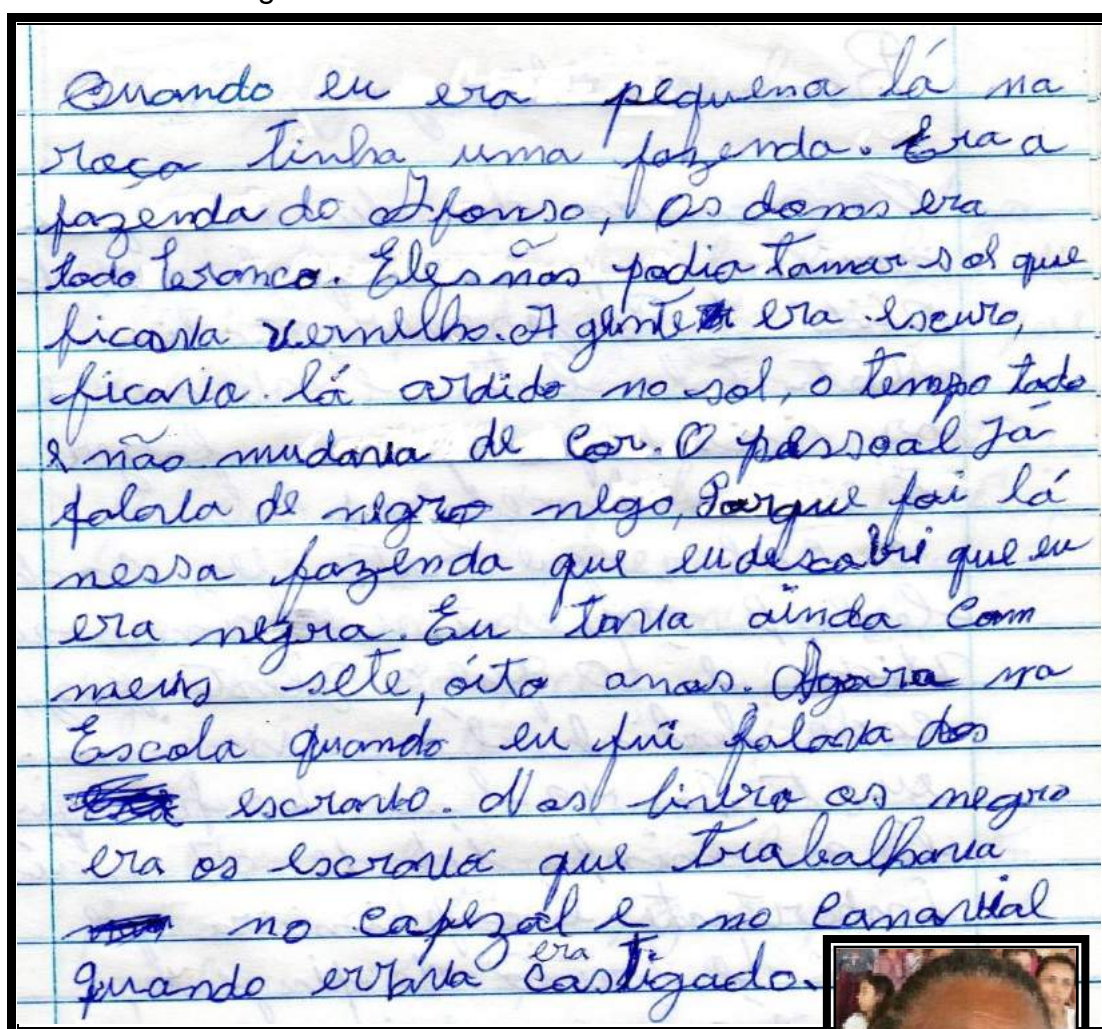 Quando eu era pequena lá na
roça tinha uma fazenda. Era a
fazenda do Afonso, Os donos era
todo branco. Eles não podia tomar sol que
ficava vermelho. A gente era escuro,
ficava lá ardido no sol, o tempo todo
e não mudava de cor. O pessoal Já
falava de negro nego, Porque foi lá
nessa fazenda que eu descobri que eu
era negra. Eu tava ainda com
meus sete, oito anos. Agora na
Escola quando eu fui falava dos
escravo. Nos livro os negro
era os escravo que trabalhava
no cafezal e no canavial
quando errava era castigado.